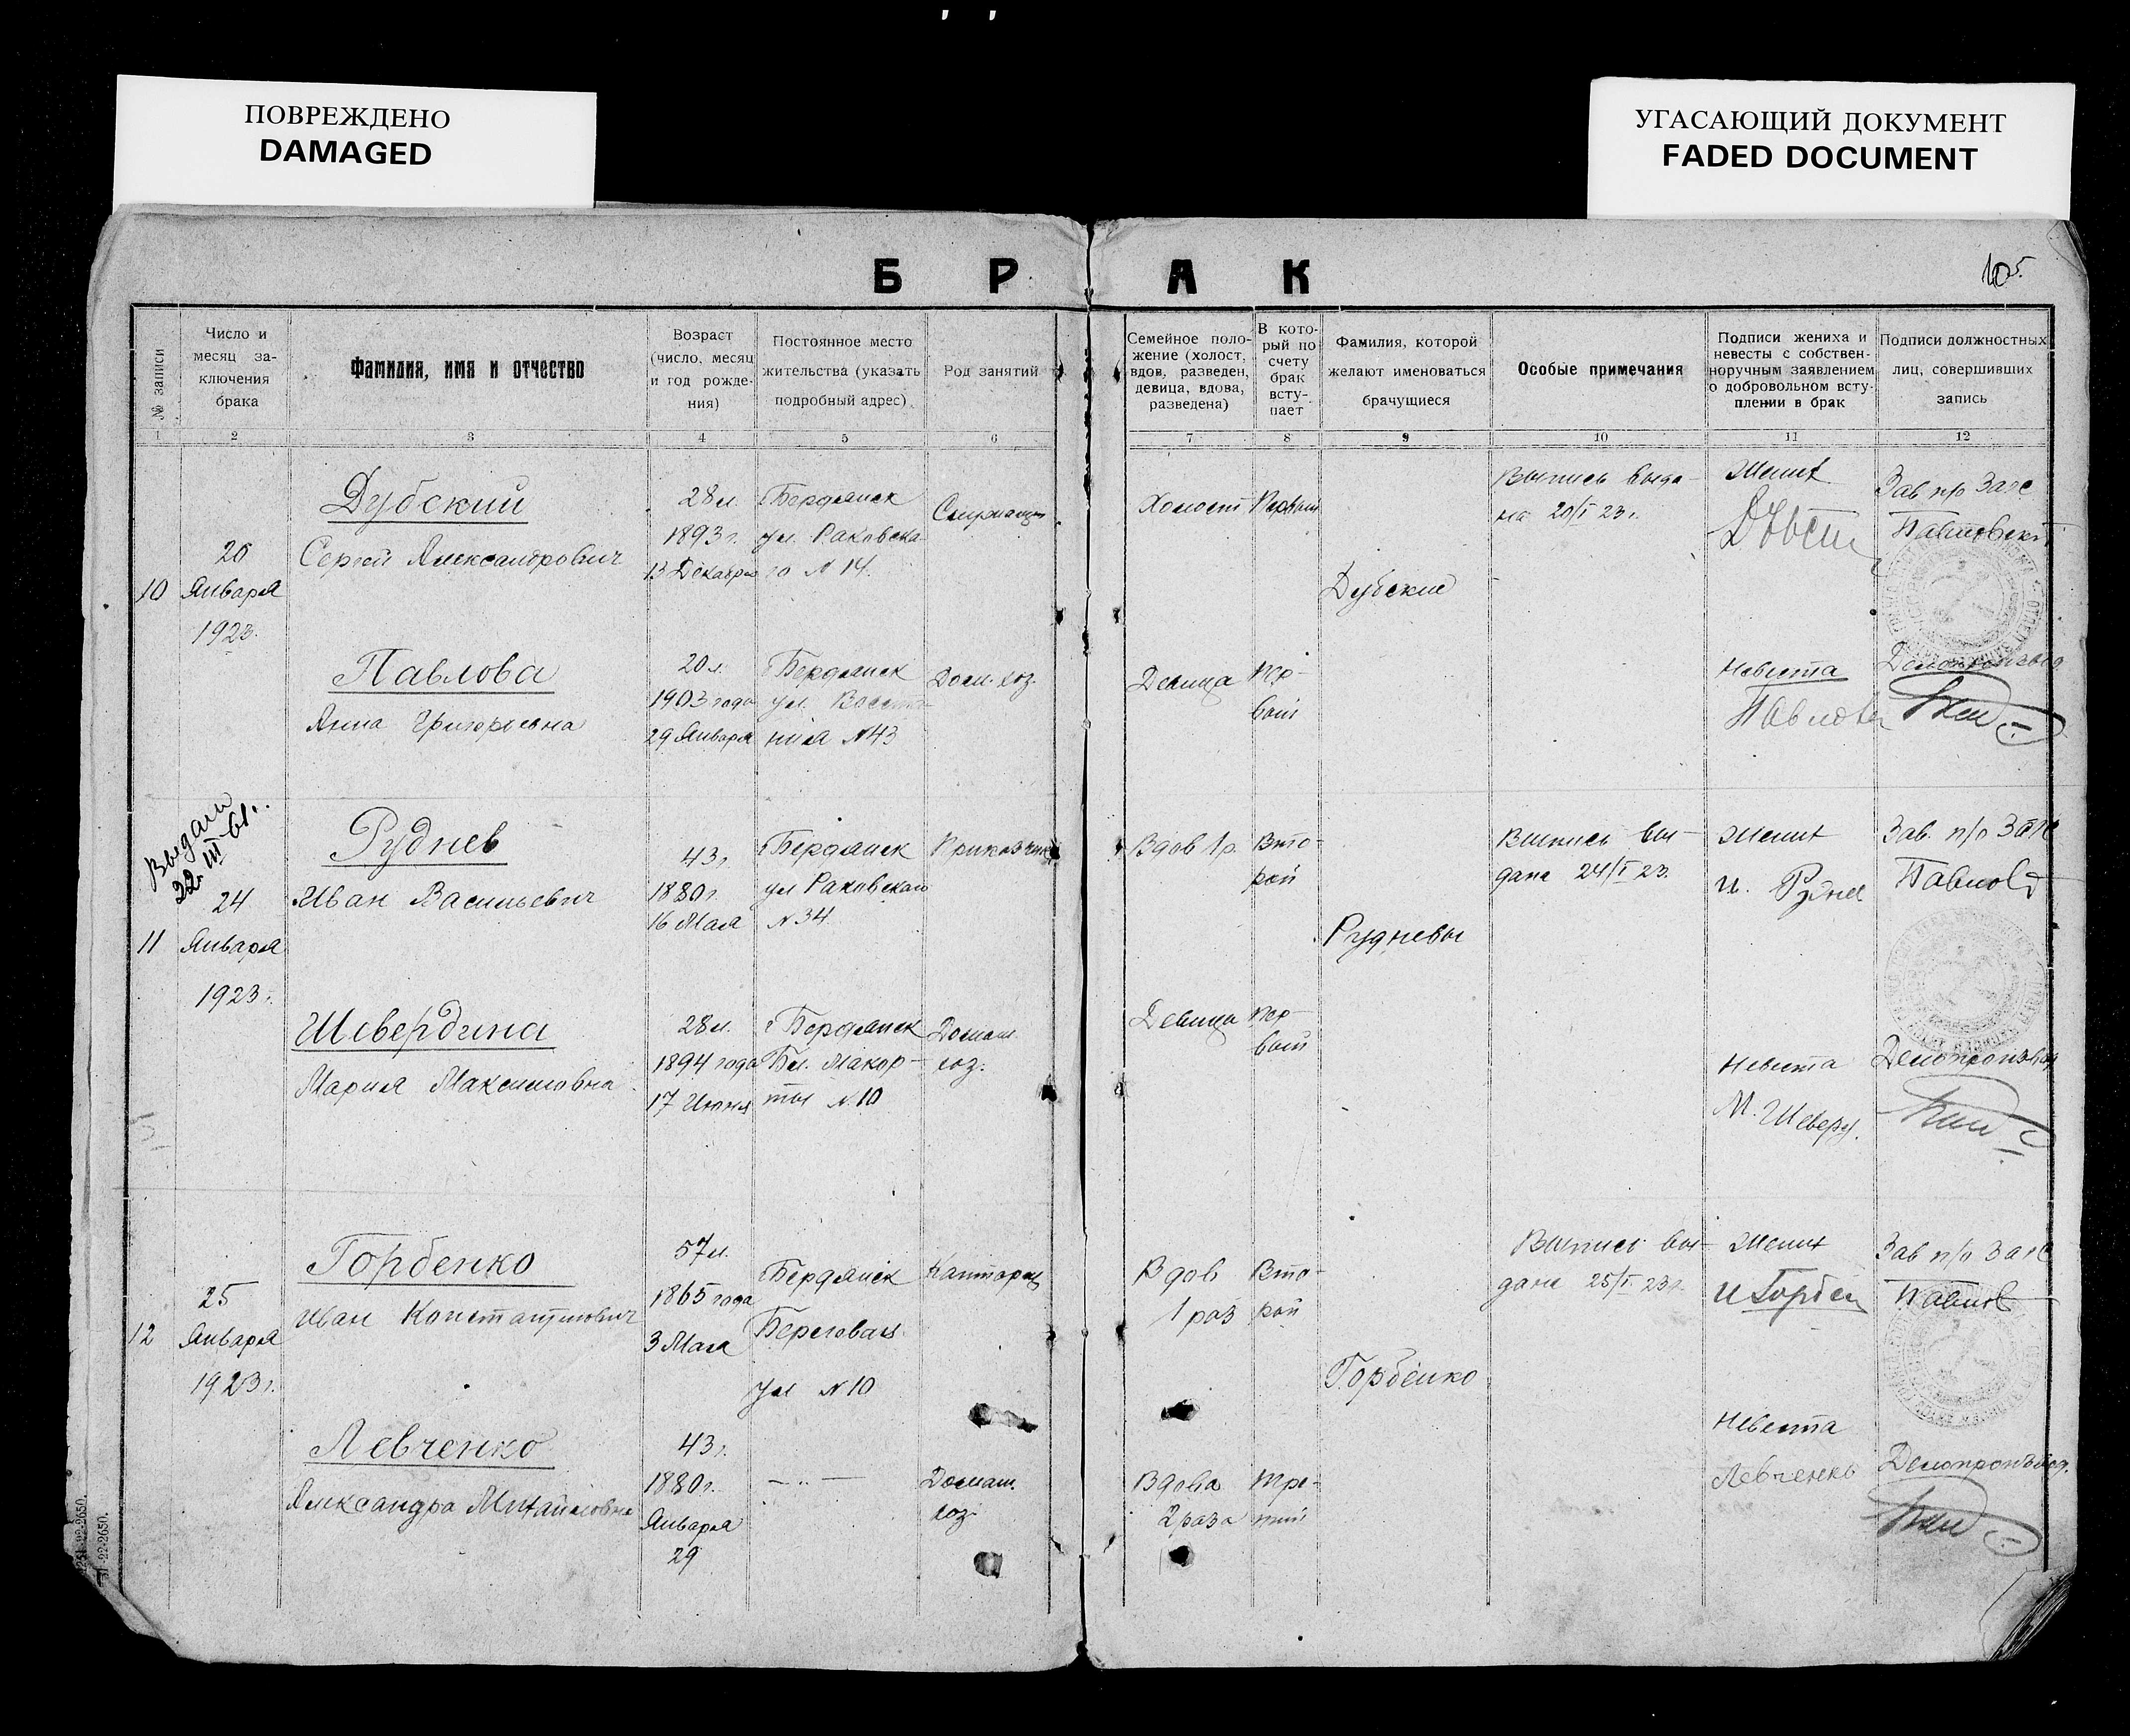 ПОВРЕЖДЕНО
DAMAGED
УГАСАЮЩИЙ ДОКУМЕНТ
FADED DOCUMENT
БРАК
№ записи
Число и
месяц за-
ключения
брака
Фамилия, имя и отчество
Возраст
(число, месяц
и год рожде-
ния)
Постоянное место
жительства (указать
подробный адрес)
Род занятий
Семейное поло-
жение (холост,
вдов, разведен,
девица, вдова,
разведена)
В кото-
рый по
счету
брак
всту-
пает
Фамилия, которой
желают именоваться
брачущиеся
Особые примечания
Подписи жениха и
невесты с собствен-
норучным заявлением
о добровольном всту-
плении в брак
Подписи должностных
лиц, совершивших
запись
1
2
3
4
5
6
7
8
9
10
11
12
10
20
Января
1923.
Дубский
Сергей Александрович
28 л.
1893 г.
13 Декабря
г Бердянск
ул. Раковска-
го № 14.
Холост
Первый
Дубские
Выпись выда-
на 20/I 23 г.
Жених
Зав п/о Загс
Павлова
Анна Григорьевна
20 л.
1903 года
29 Января
г Бердянск
ул. Восста-
ния № 43
Дом. хоз.
Девица
Пер-
вый
Невеста
Павлова
Делопроизвод
Выдали
22 III 61 г.
11
24
Января
1923 г.
Руднев
Иван Васильевич
43 г.
1880 г.
16 Мая
г Бердянск
ул Раковского
№ 34
Приказчик
Вдов 1 р.
Вто-
рой
Рудневы
Выпись вы-
дана 24/I 23.
Жених
И. Руднев
Зав. п/о Загс
Шевердина
Мария Максимовна
28 л.
1894 года
17 Июня
г Бердянск
Бл. Макор-
ты № 10
Домаш.
хоз.
Девица
Пер-
вый
Невеста
М. Шеверд.
Делопроизвод
12
25
Января
1923 г.
Горбенко
Иван Константинович
57 л.
1865 года
3 Мая
г Бердянск
Береговая
ул № 10
Вдов
1 раз
Вто-
рой
Горбенко
Выпись вы-
дана 25/I 23 г.
Жених
И Горбен
Зав п/о Загс
Левченко
Александра Михайловна
43 г.
1880 г.
Января
29
— „ —
Домаш.
хоз.
Вдова
2 раза
Тре-
тий
Невеста
Левченко
Делопроизвод.